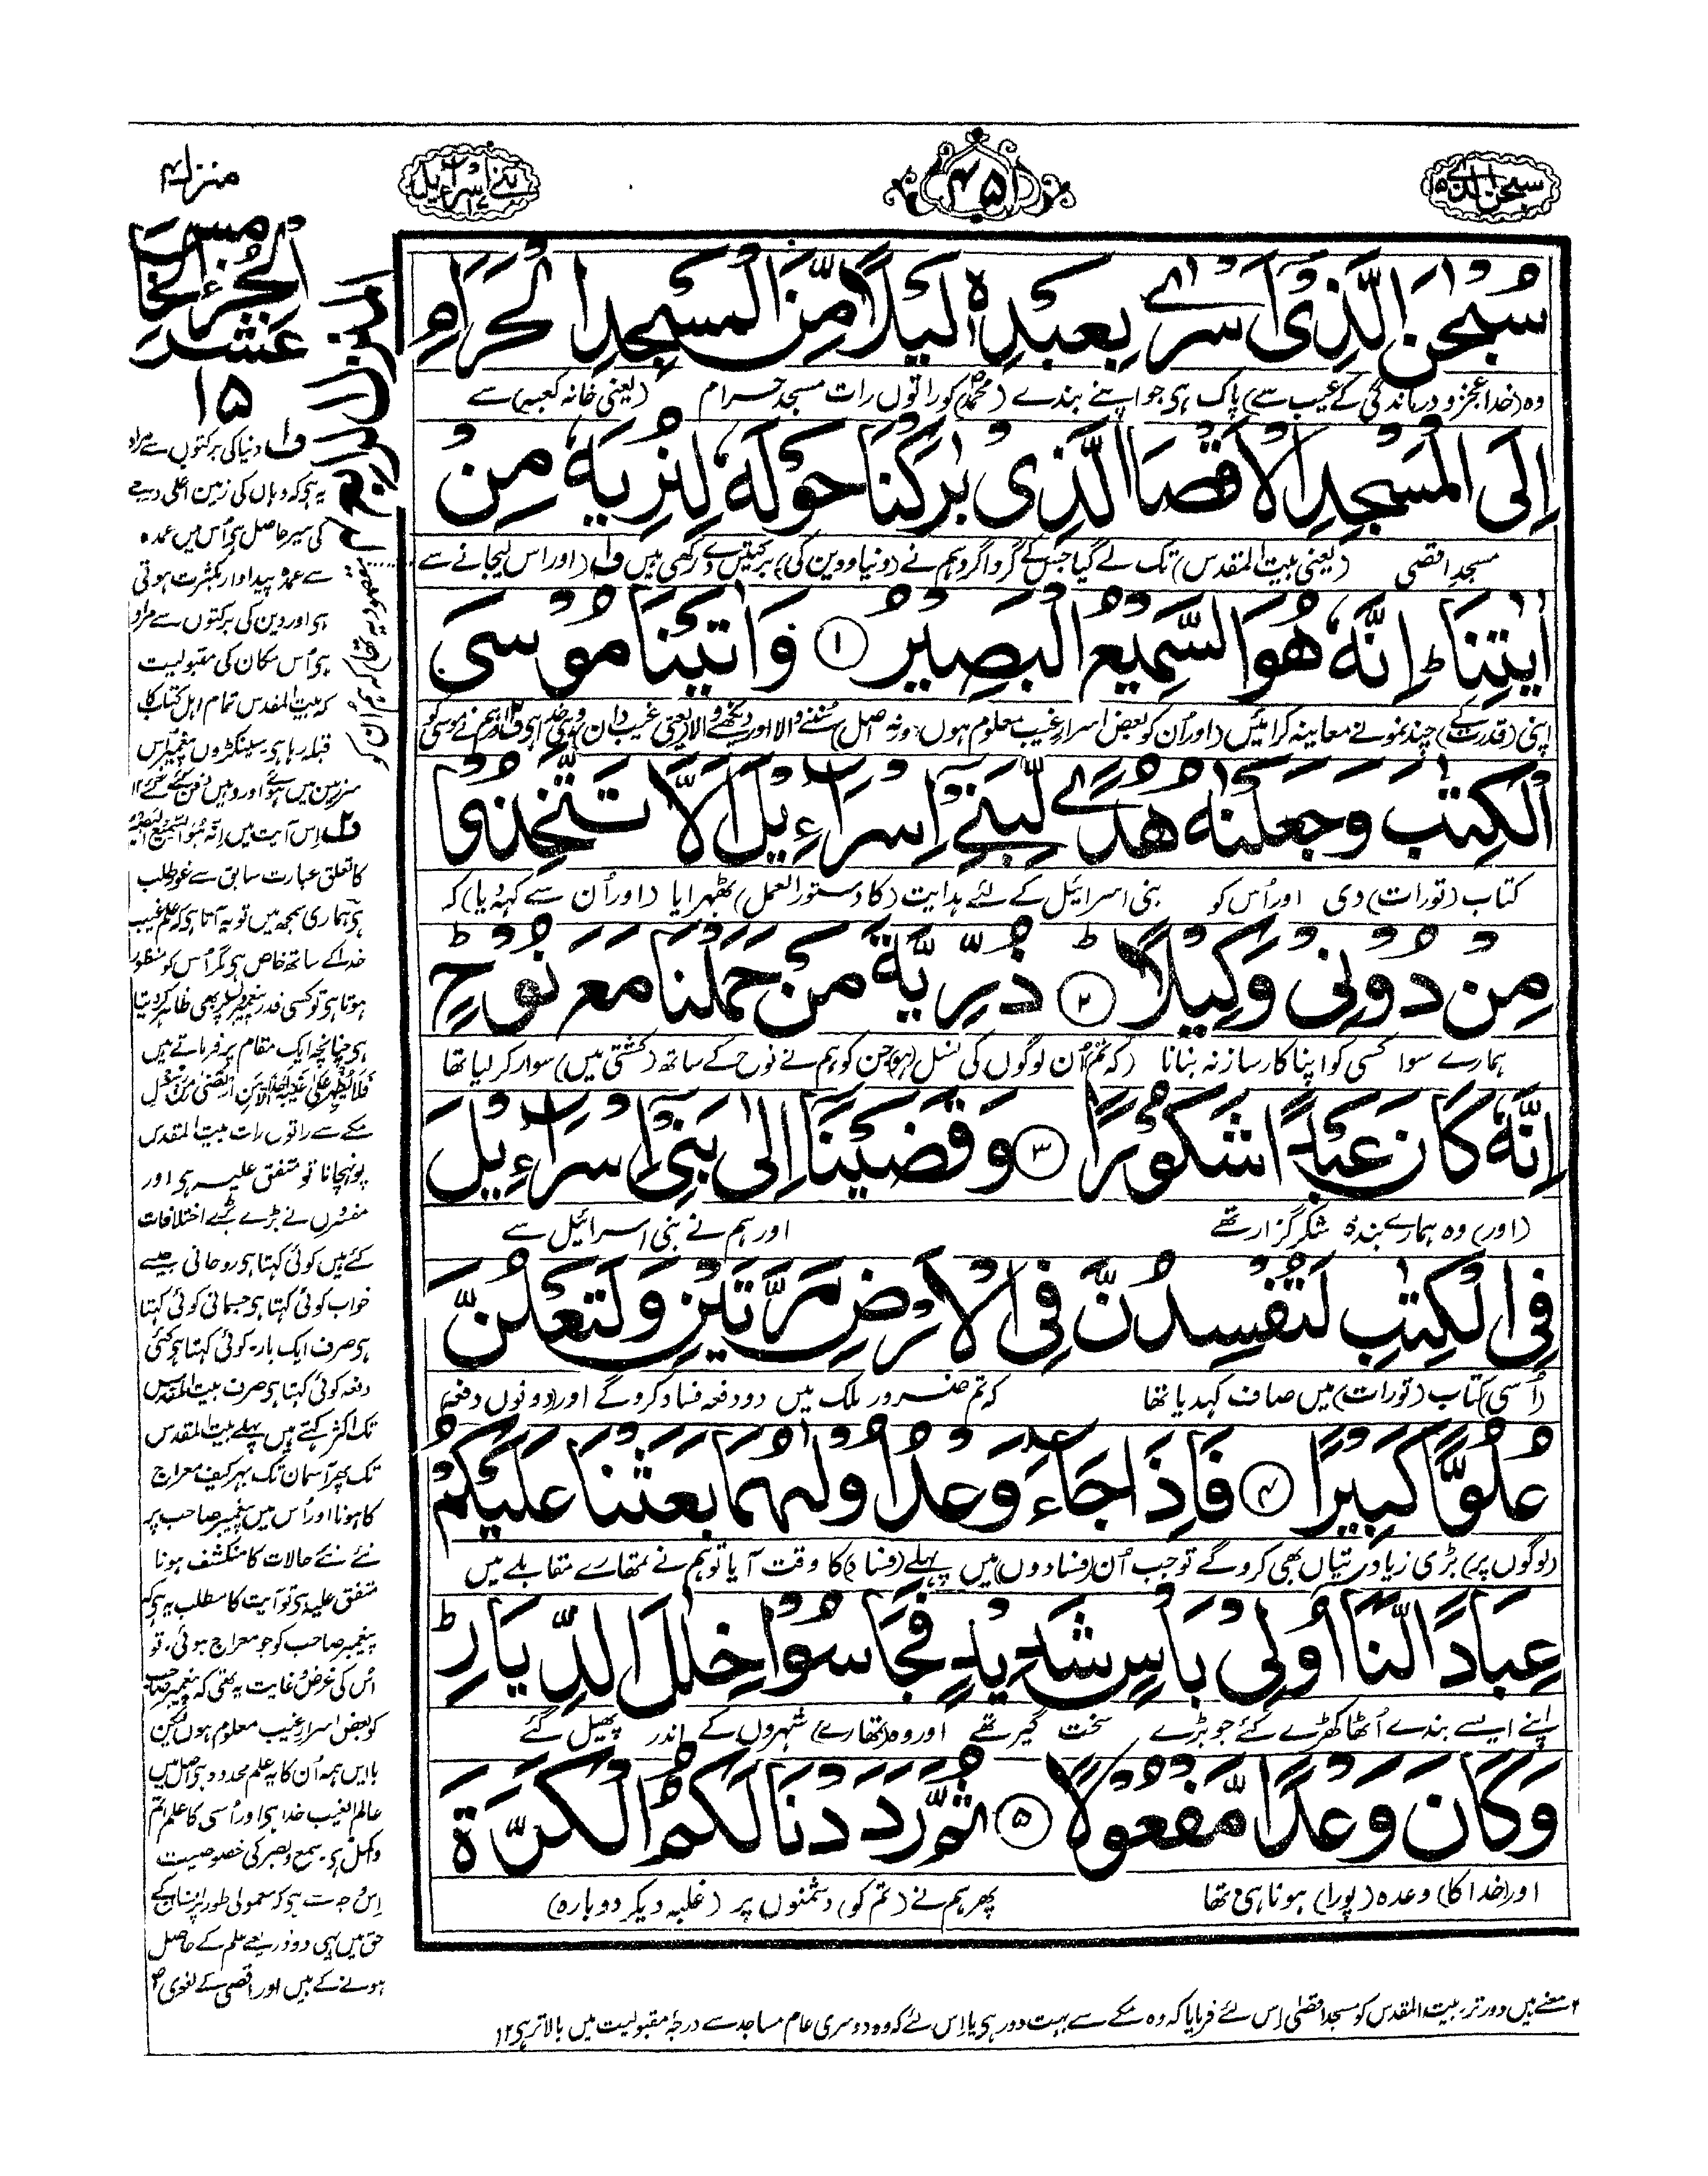 سبحن الذی ۱۵
۴۵۰
بنی اسراءیل ۱۷
منزل ۴
سُبْحٰنَ الَّذِیْۤ اَسْرٰی بِعَبْدِهٖ لَیْلًا مِّنَ الْمَسْجِدِ الْحَرَامِ
وہ (خدا عجز و درماندگی کے عیب سے) پاک ہی جو اپنے بندے (محمدؐ) کو راتوں رات مسجد حرام (یعنی خانہ کعبہ) سے
اِلَی الْمَسْجِدِ الْاَقْصَا الَّذِیْ بٰرَكْنَا حَوْلَهٗ لِنُرِیَهٗ مِنْ
مسجد اقصی (یعنی بیت المقدس) تک لے گیا جس کے گرداگرد ہم نے (دنیا و دین کی) برکتیں دے رکھی ہیں ف۱ (اور اس لیجانے سے
اٰیٰتِنَا ؕ اِنَّهٗ هُوَ السَّمِیْعُ الْبَصِیْرُ ۝۱ وَ اٰتَیْنَا مُوْسَی
اپنی (قدرت کے) چند نمونے معاینہ کرائیں (اور اُن کو بعض اسرار غیب معلوم ہوں ورنہ اصل) سننے والا اور دیکھنے والا (یعنی غیب داں) وہی خدا ہی ف۲ اور ہم نے موسیٰ کو
الْكِتٰبَ وَ جَعَلْنٰهُ هُدًی لِّبَنِیْۤ اِسْرَآءِیْلَ اَلَّا تَتَّخِذُوْا
کتاب (تورات) دی اور اُس کو بنی اسرائیل کے لئے ہدایت (کا دستور العمل) ٹھہرایا (اور اُن سے کہہ دیا) کہ
مِنْ دُوْنِیْ وَكِیْلًا ؕ ۝۲ ذُرِّیَّةَ مَنْ حَمَلْنَا مَعَ نُوْحٍ ؕ
ہمارے سوا کسی کو اپنا کارساز نہ بنانا (کہ تم اُن لوگوں کی نسل (ہو) جن کو ہم نے نوح کے ساتھ (کشتی میں) سوار کر لیا تھا
اِنَّهٗ كَانَ عَبْدًا شَكُوْرًا ۝۳ وَ قَضَیْنَاۤ اِلٰی بَنِیْۤ اِسْرَآءِیْلَ
(اور) وہ ہمارے بندہ شکر گزار تھے اور ہم نے بنی اسرائیل سے
فِی الْكِتٰبِ لَتُفْسِدُنَّ فِی الْاَرْضِ مَرَّتَیْنِ وَ لَتَعْلُنَّ
(اُسی) کتاب (تورات) میں صاف کہدیا تھا کہ تم ضرور ملک میں دو دفعہ فساد کرو گے اور (دونوں دفعہ)
عُلُوًّا كَبِیْرًا ۝۴ فَاِذَا جَآءَ وَعْدُ اُوْلٰىهُمَا بَعَثْنَا عَلَیْكُمْ
(لوگوں پر) بڑی زیادتیاں بھی کرو گے تو جب اُن (فسادوں) میں پہلے (فساد) کا وقت آیا تو ہم نے تمھارے مقابلے میں
عِبَادًا لَّنَاۤ اُولِیْ بَاْسٍ شَدِیْدٍ فَجَاسُوْا خِلٰلَ الدِّیَارِ ؕ
اپنے ایسے بندے اُٹھا کھڑے کئے جو بڑے سخت گیر تھے اور وہ (تمھارے) شہروں کے اندر پھیل گئے
وَ كَانَ وَعْدًا مَّفْعُوْلًا ۝۵ ثُمَّ رَدَدْنَا لَكُمُ الْكَرَّةَ
اور (خدا کا) وعدہ (پورا) ہونا ہی تھا پھر ہم نے (تم کو) دشمنوں پر (غلبہ دیکر دوبارہ)
الجزء الخامس
عشر
۱۵
ف۱ دنیا کی برکتوں سے مراد
یہ ہی کہ وہاں کی زمین اعلی درجے
کی سیر حاصل ہی اُس میں عمدہ
سے عمدہ پیداوار بکثرت ہوتی
ہی اور دین کی برکتوں سے مراد
ہی اُس مکان کی مقبولیت
کہ بیت المقدس تمام اہل کتاب کا
قبلہ رہا ہی سینکڑوں پیغمبر اُس
سرزمین میں ہوئے اور وہیں دفن کئے گئے ۱۲
ف۲ اِس آیت میں اِنہ ہو السمیع البصیر
کا تعلق عبارت سابق سے غور طلب
ہی ہماری سمجھ میں تو یہ آتا ہی کہ علم غیب
خدا کے ساتھ خاص ہی مگر اُس کو منظور
ہوتا ہی تو کسی قدر پیغمبروں پر بھی ظاہر کر دیتا
ہی چنانچہ ایک مقام پر فرماتے ہیں
فلا یظہر علی غیبہ احدا الا من ارتضی من رسول
مکے سے راتوں رات بیت المقدس
پہونچانا تو متفق علیہ ہی اور
مفسروں نے بڑے بڑے اختلافات
کئے ہیں کوئی کہتا ہی روحانی جیسے
خواب کوئی کہتا ہی جسمانی کوئی کہتا
ہی صرف ایک بار۔ کوئی کہتا ہی کئی
دفعہ کوئی کہتا ہی صرف بیت المقدس
تک اکثر کہتے ہیں پہلے بیت المقدس
تک پھر آسمان تک بہر کیف معراج
کا ہونا اور اُس میں پیغمبر صاحب پر
نئے نئے حالات کا منکشف ہونا
متفق علیہ ہی تو آیت کا مطلب یہ ہی کہ
پیغمبر صاحب کو جو معراج ہوئی، تو
اُس کی غرض غایت یہ تھی کہ پیغمبر صاحب
کو بعض اسرار غیب معلوم ہوں لیکن
باایں ہمہ اُن کا یہ علم محدود ہی اصل میں
عالم الغیب خدا ہی اور اُسی کا علم اتم
و اکمل ہی۔ سمع و بصر کی خصوصیت
اِس وجہ سے ہی کہ معمولی طور پر انسان کے
حق میں یہی دو ذریعے علم کے حاصل
ہونے کے ہیں اور اقصی کے لغوی
معنے ہیں دور تر بیت المقدس کو مسجد اقصٰی اِس لئے فرمایا کہ وہ مکے سے بہت دور ہی یا اِس لئے کہ وہ دوسری عام مساجد سے درجۂ مقبولیت میں بالاتر ہی ۱۲